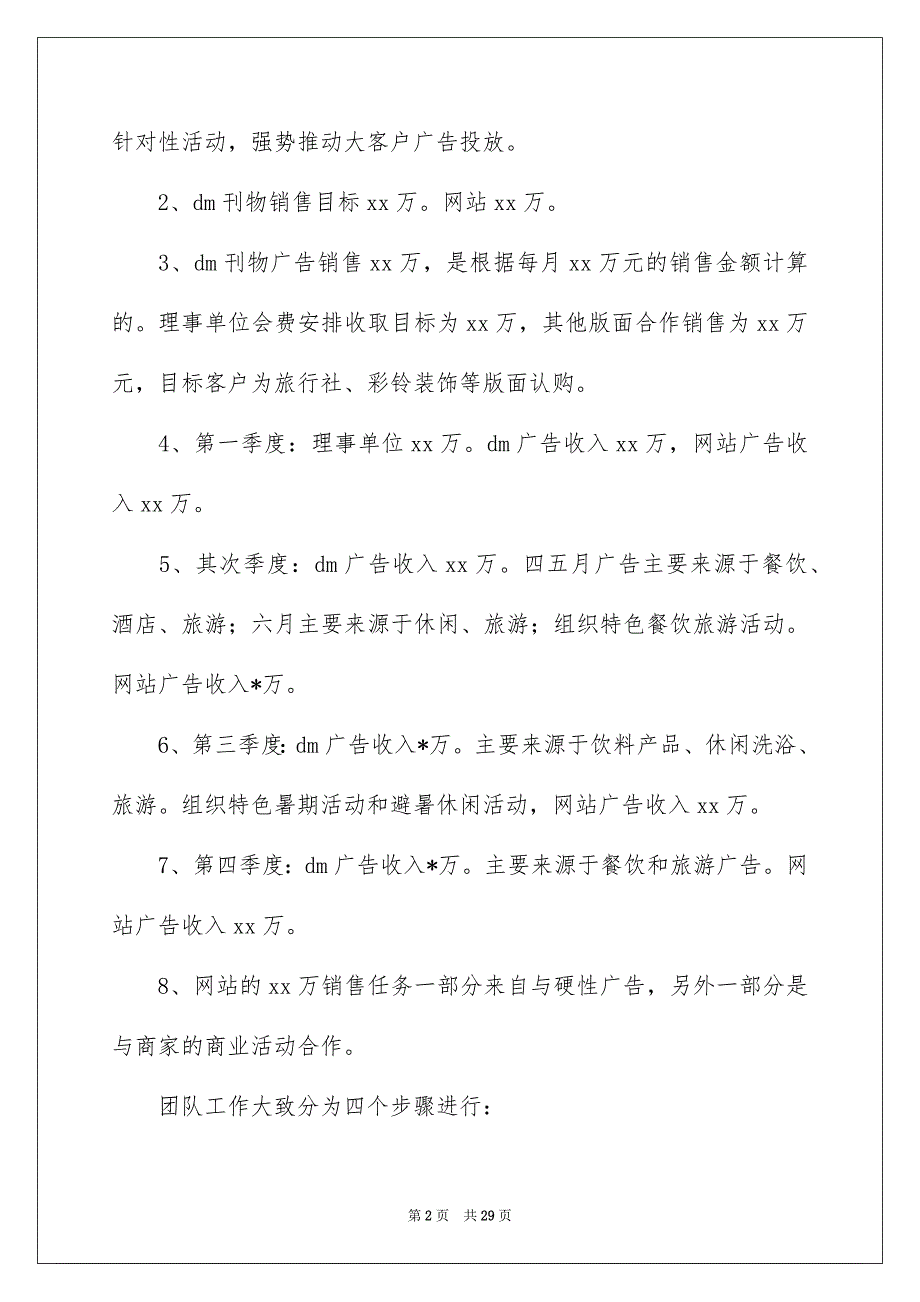 针对性活动，强势推动大客户广告投放。
2、dm 刊物销售目标 xx 万。网站 xx 万。
3、dm 刊物广告销售 xx 万，是根据每月 xx 万元的销售金额计算
的。理事单位会费安排收取目标为 xx 万，其他版面合作销售为 xx 万
元，目标客户为旅行社、彩铃装饰等版面认购。
4、第一季度：理事单位 xx 万。dm 广告收入 xx 万，网站广告收
入 xx 万。
5、其次季度：dm 广告收入 xx 万。四五月广告主要来源于餐饮、
酒店、旅游；六月主要来源于休闲、旅游；组织特色餐饮旅游活动。
网站广告收入*万。
6、第三季度：dm 广告收入*万。主要来源于饮料产品、休闲洗浴、
旅游。组织特色暑期活动和避暑休闲活动，网站广告收入 xx 万。
7、第四季度：dm 广告收入*万。主要来源于餐饮和旅游广告。网
站广告收入 xx 万。
8、网站的 xx 万销售任务一部分来自与硬性广告，另外一部分是
与商家的商业活动合作。
团队工作大致分为四个步骤进行：
第 2 页 共 29 页